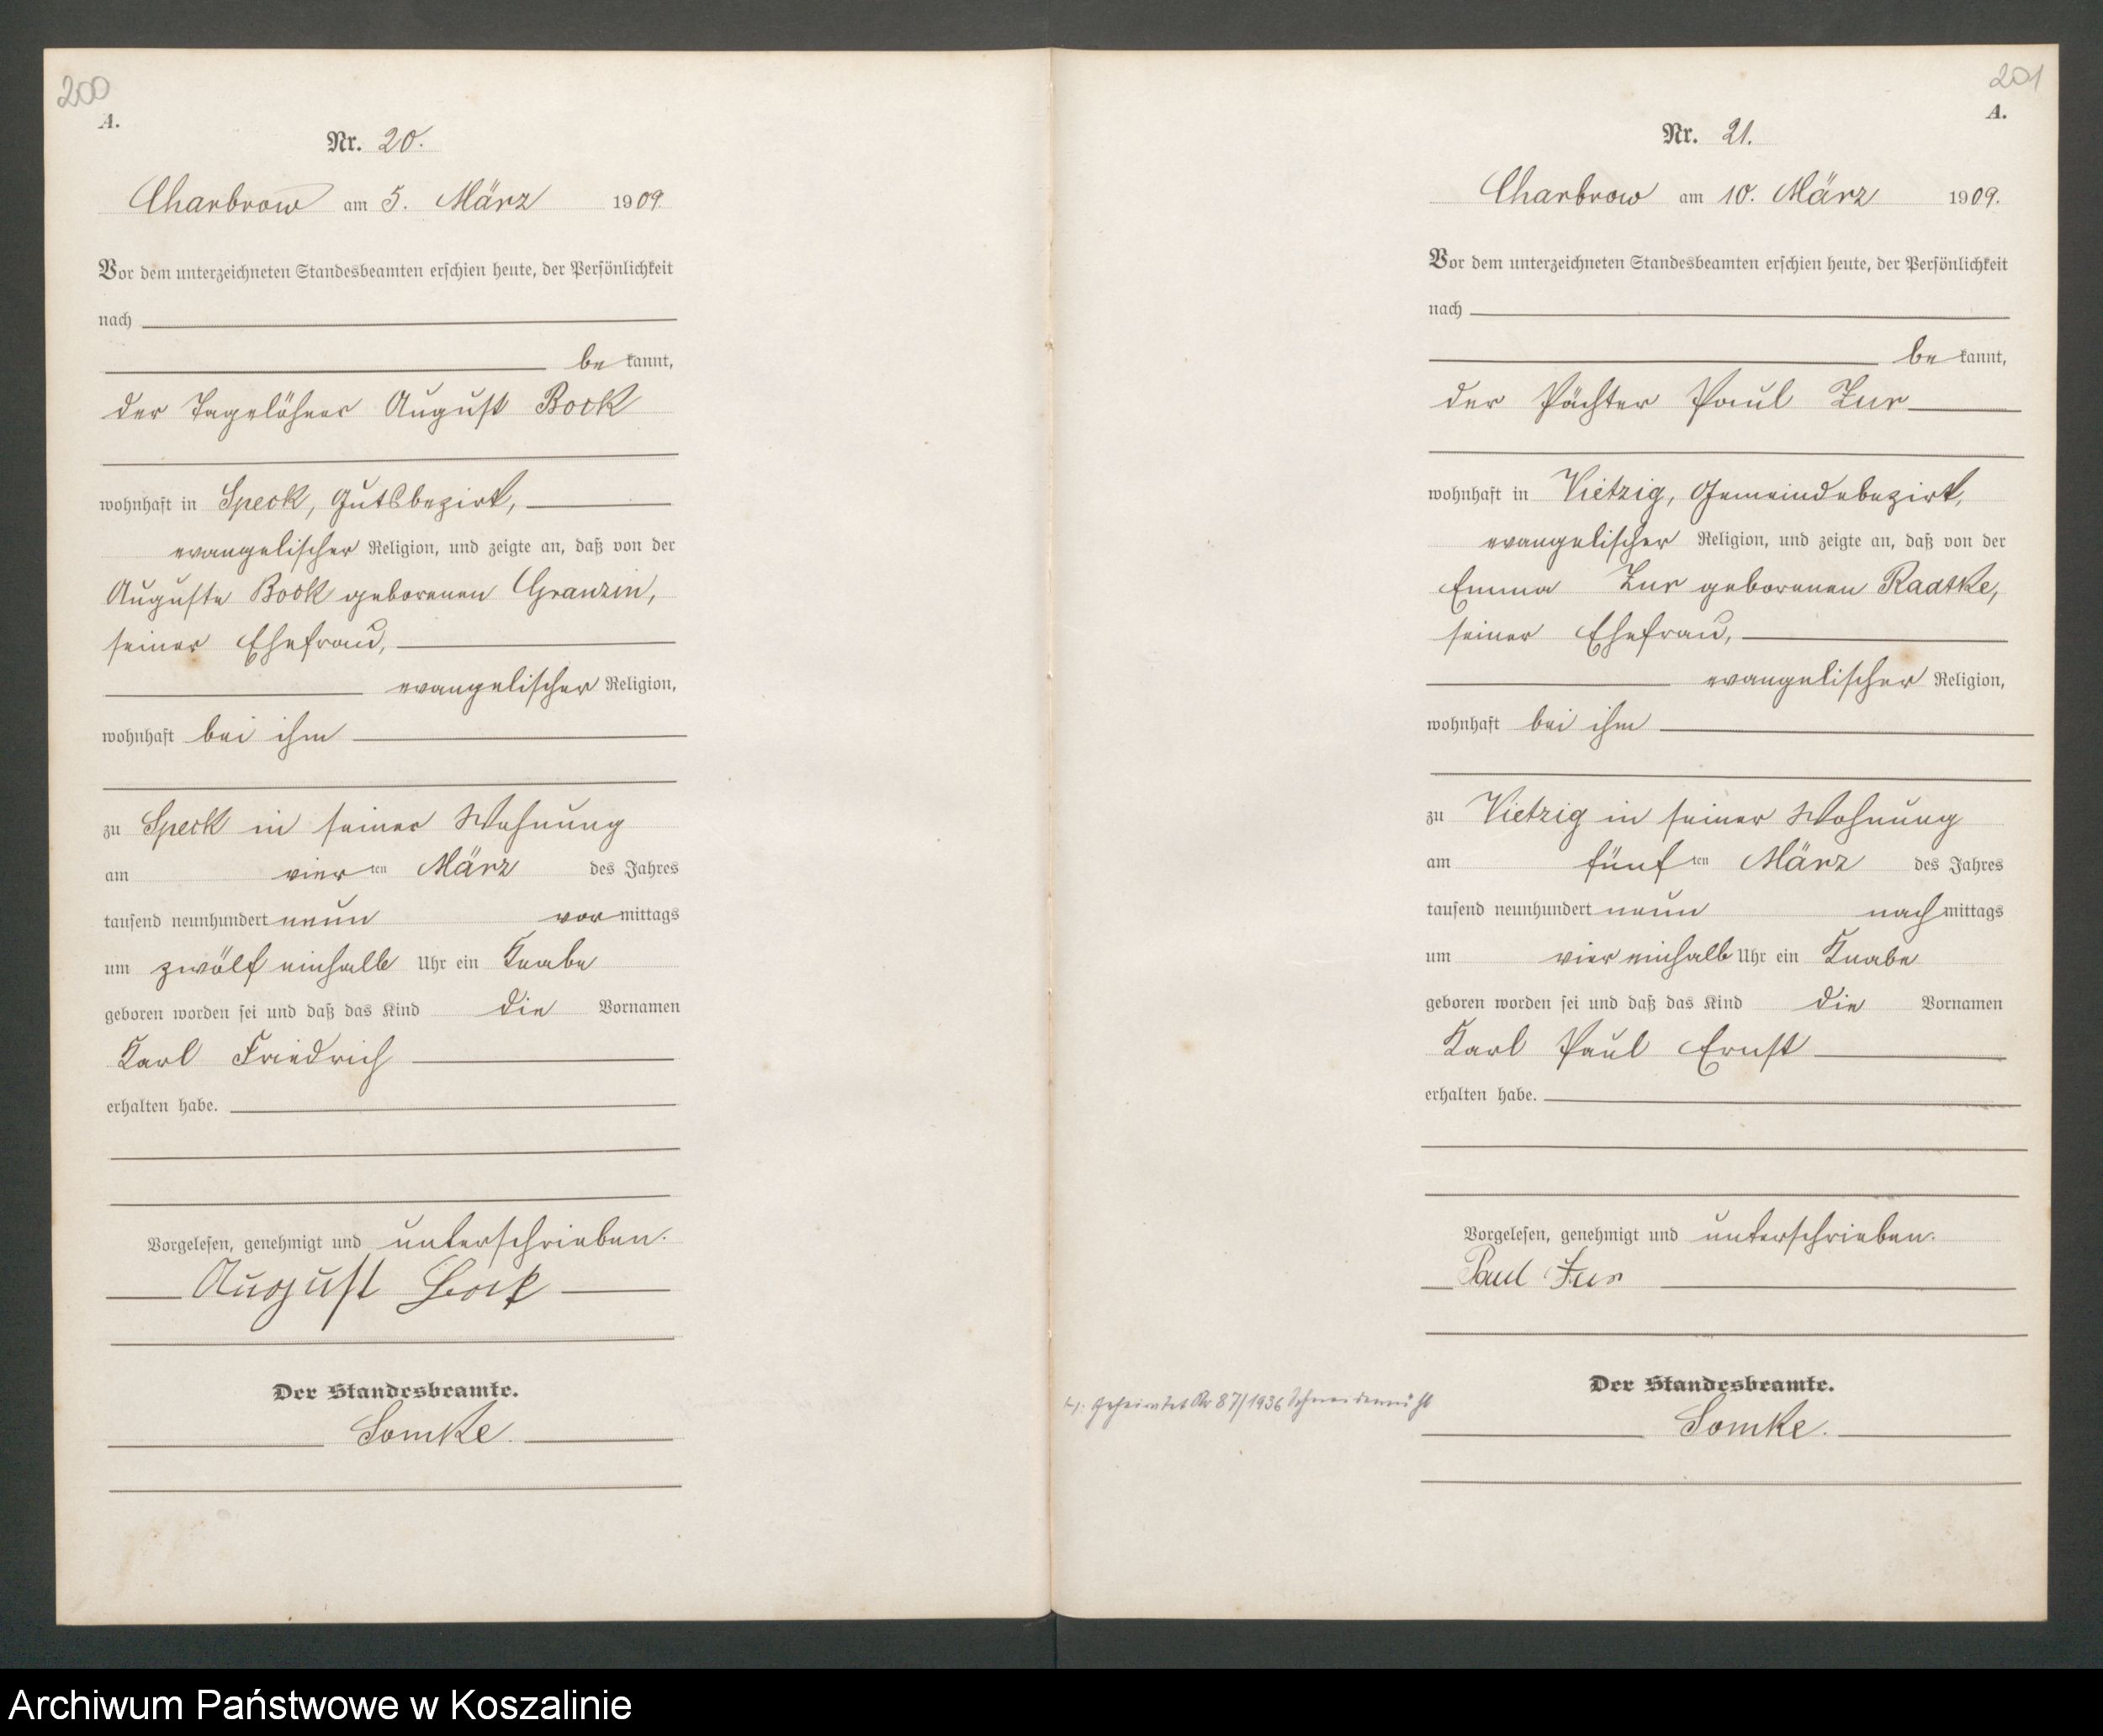 200
A.
Nr. 20.
Charbrow am 5. März 1909.
Vor dem unterzeichneten Standesbeamten erschien heute, der Persönlichkeit
nach
be kannt,
der Tagelöhner August Bock
wohnhaft in Speck, Gutsbezirk,
evangelischer Religion, und zeigte an, daß von der
Auguste Bock geborenen Granzin,
seiner Ehefrau,
evangelischer Religion,
wohnhaft bei ihm
zu Speck in seiner Wohnung
am vier ten März des Jahres
tausend neunhundert neun vor mittags
um zwölf einhalb Uhr ein Knabe
geboren worden sei und daß das Kind die Vornamen
Karl Friedrich
erhalten habe.
Vorgelesen, genehmigt und unterschrieben.
August Bock
Der Standesbeamte.
Lomke.
201
A.
Nr. 21.
Charbrow am 10. März 1909.
Vor dem unterzeichneten Standesbeamten erschien heute, der Persönlichkeit
nach
be kannt,
der Pächter Paul Zur
wohnhaft in Vietzig, Gemeindebezirk,
evangelischer Religion, und zeigte an, daß von der
Emma Zur geborenen Raatke,
seiner Ehefrau,
evangelischer Religion,
wohnhaft bei ihm
zu Vietzig in seiner Wohnung
am fünf ten März des Jahres
tausend neunhundert neun nach mittags
um vier einhalb Uhr ein Knabe
geboren worden sei und daß das Kind die Vornamen
Karl Paul Ernst
erhalten habe.
Vorgelesen, genehmigt und unterschrieben.
Paul Zur
Der Standesbeamte.
geheiratet Nr 87/1936 Schneidemühl
Lomke.
Archiwum Państwowe w Koszalinie